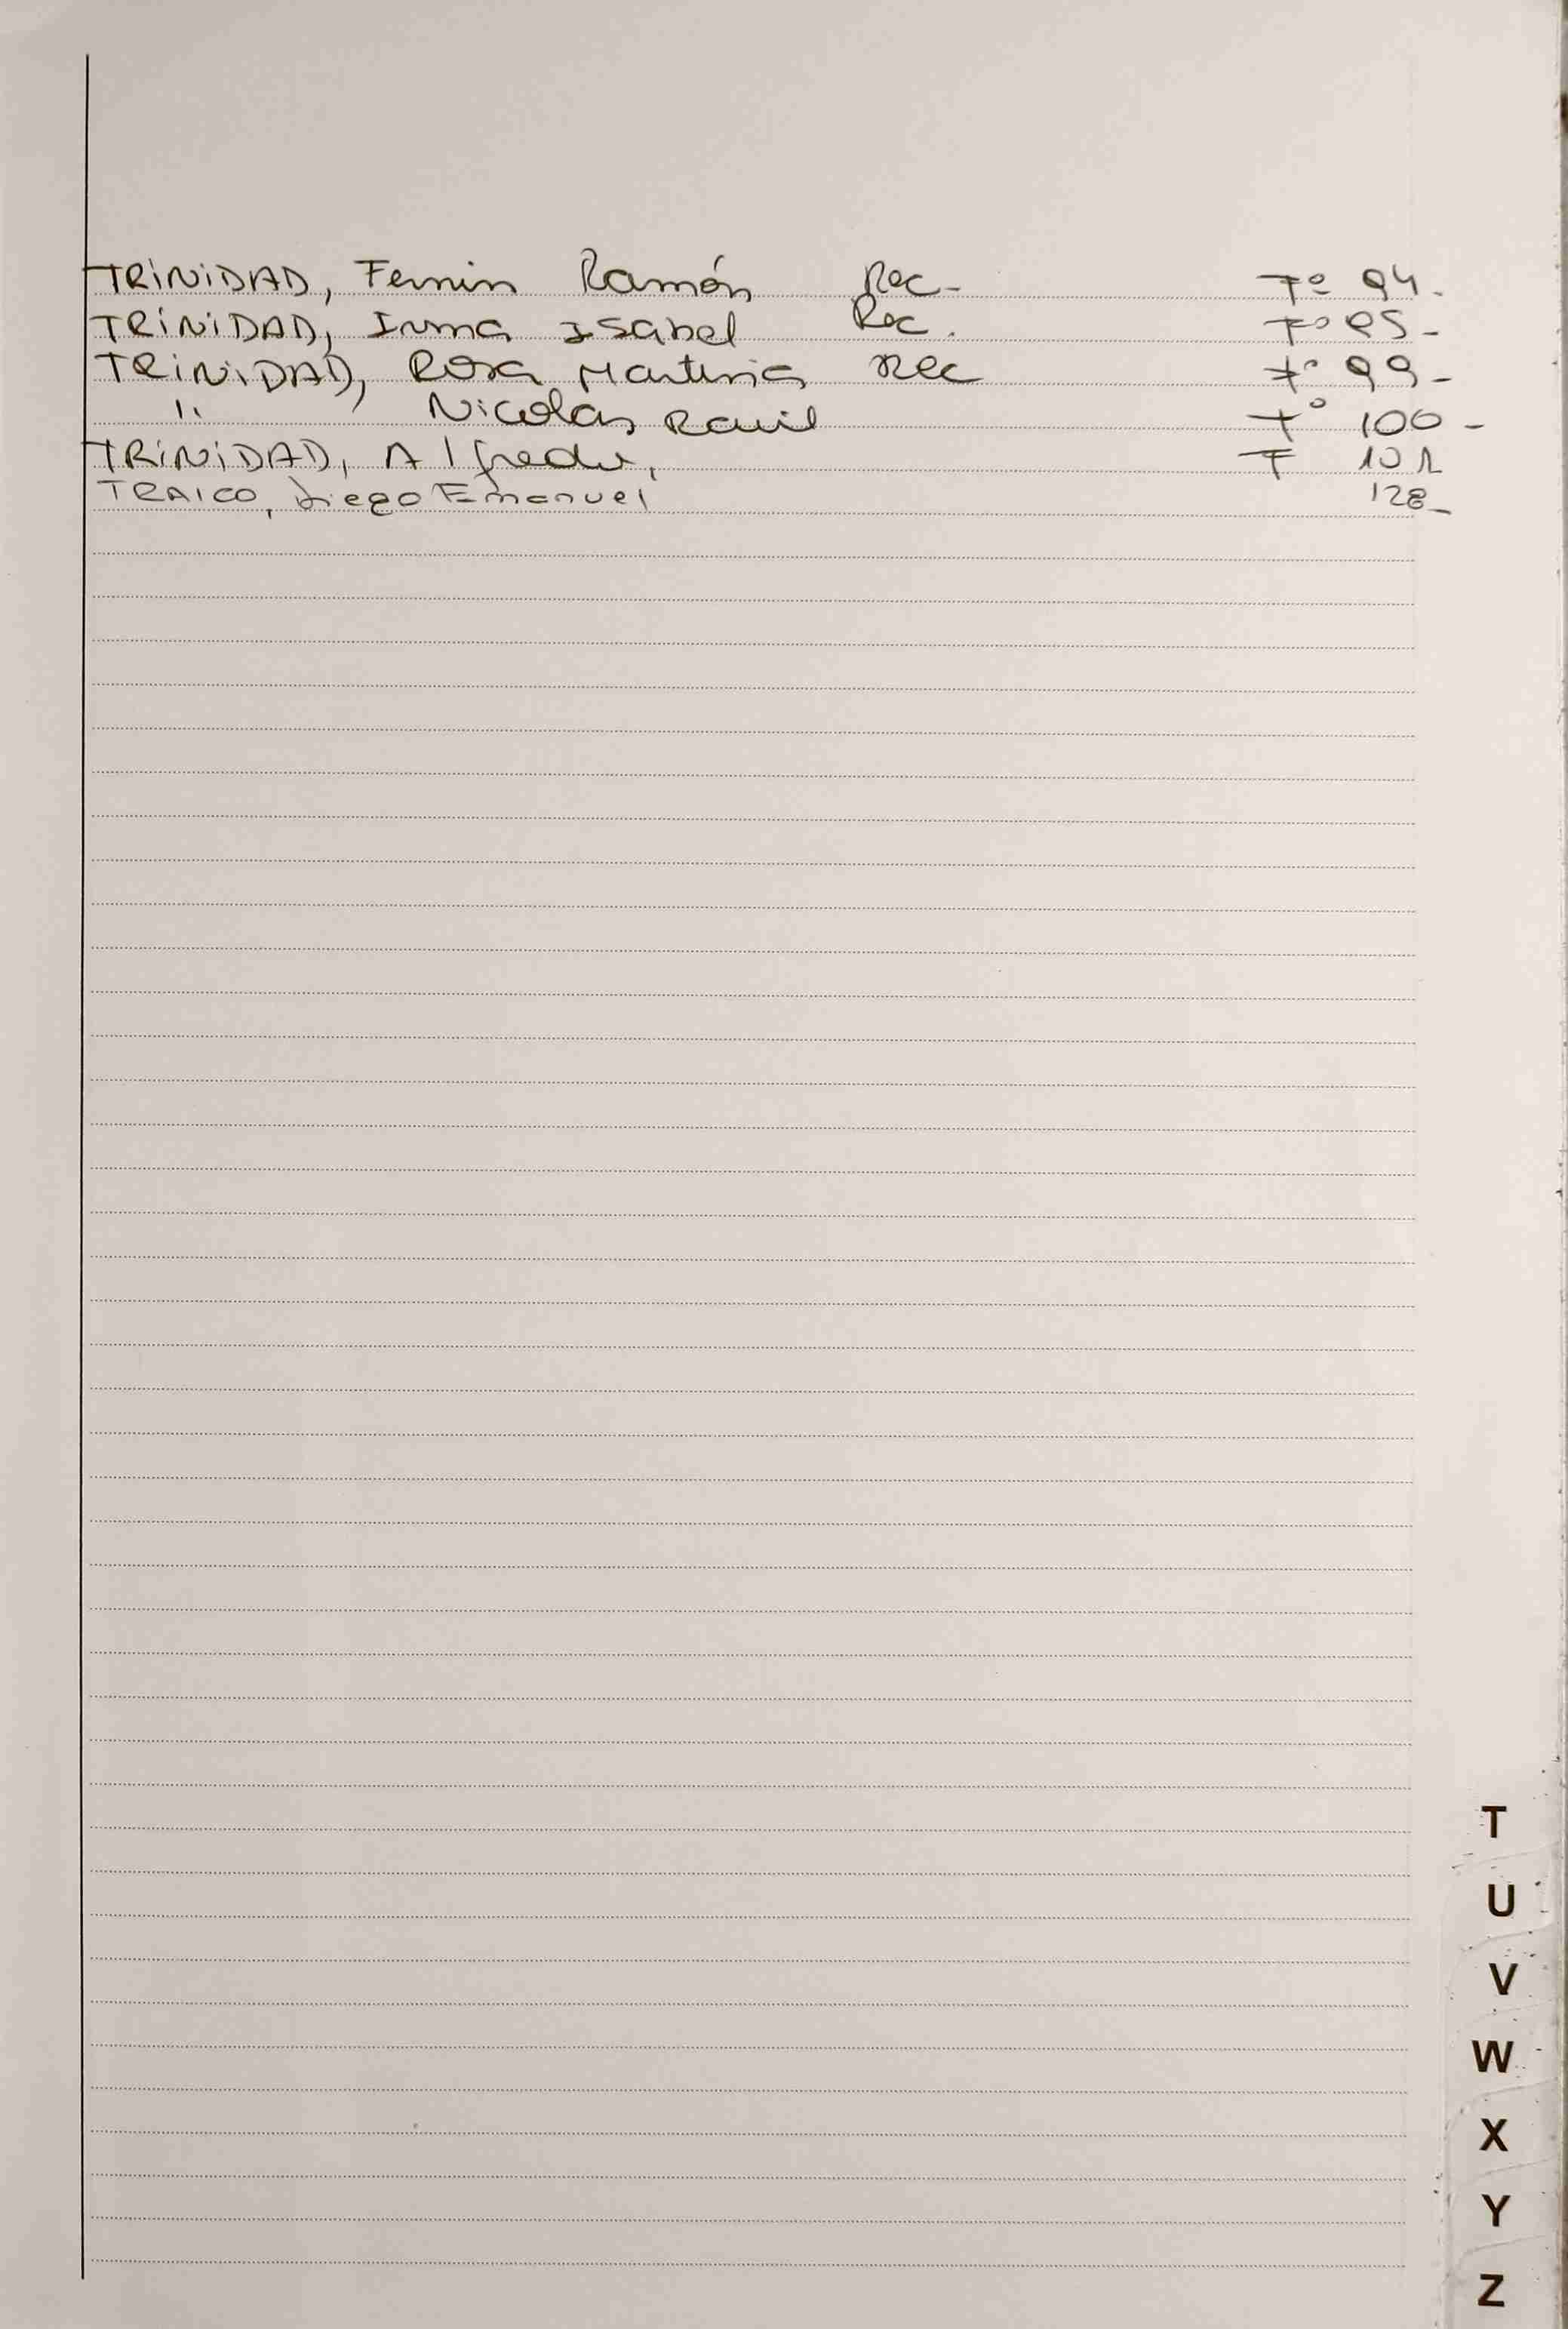 TRINIDAD, Fermin Ramón Rec- Fº 94.
TRINIDAD, Irma Isabel Rec. Fº 95-
TRINIDAD, Rosa Martina Rec Fº 99-
" Nicolas Raul Fº 100-
TRINIDAD, Alfredo, F 101
TRAICO, Diego Emanuel 128-
T
U
V
W
X
Y
Z